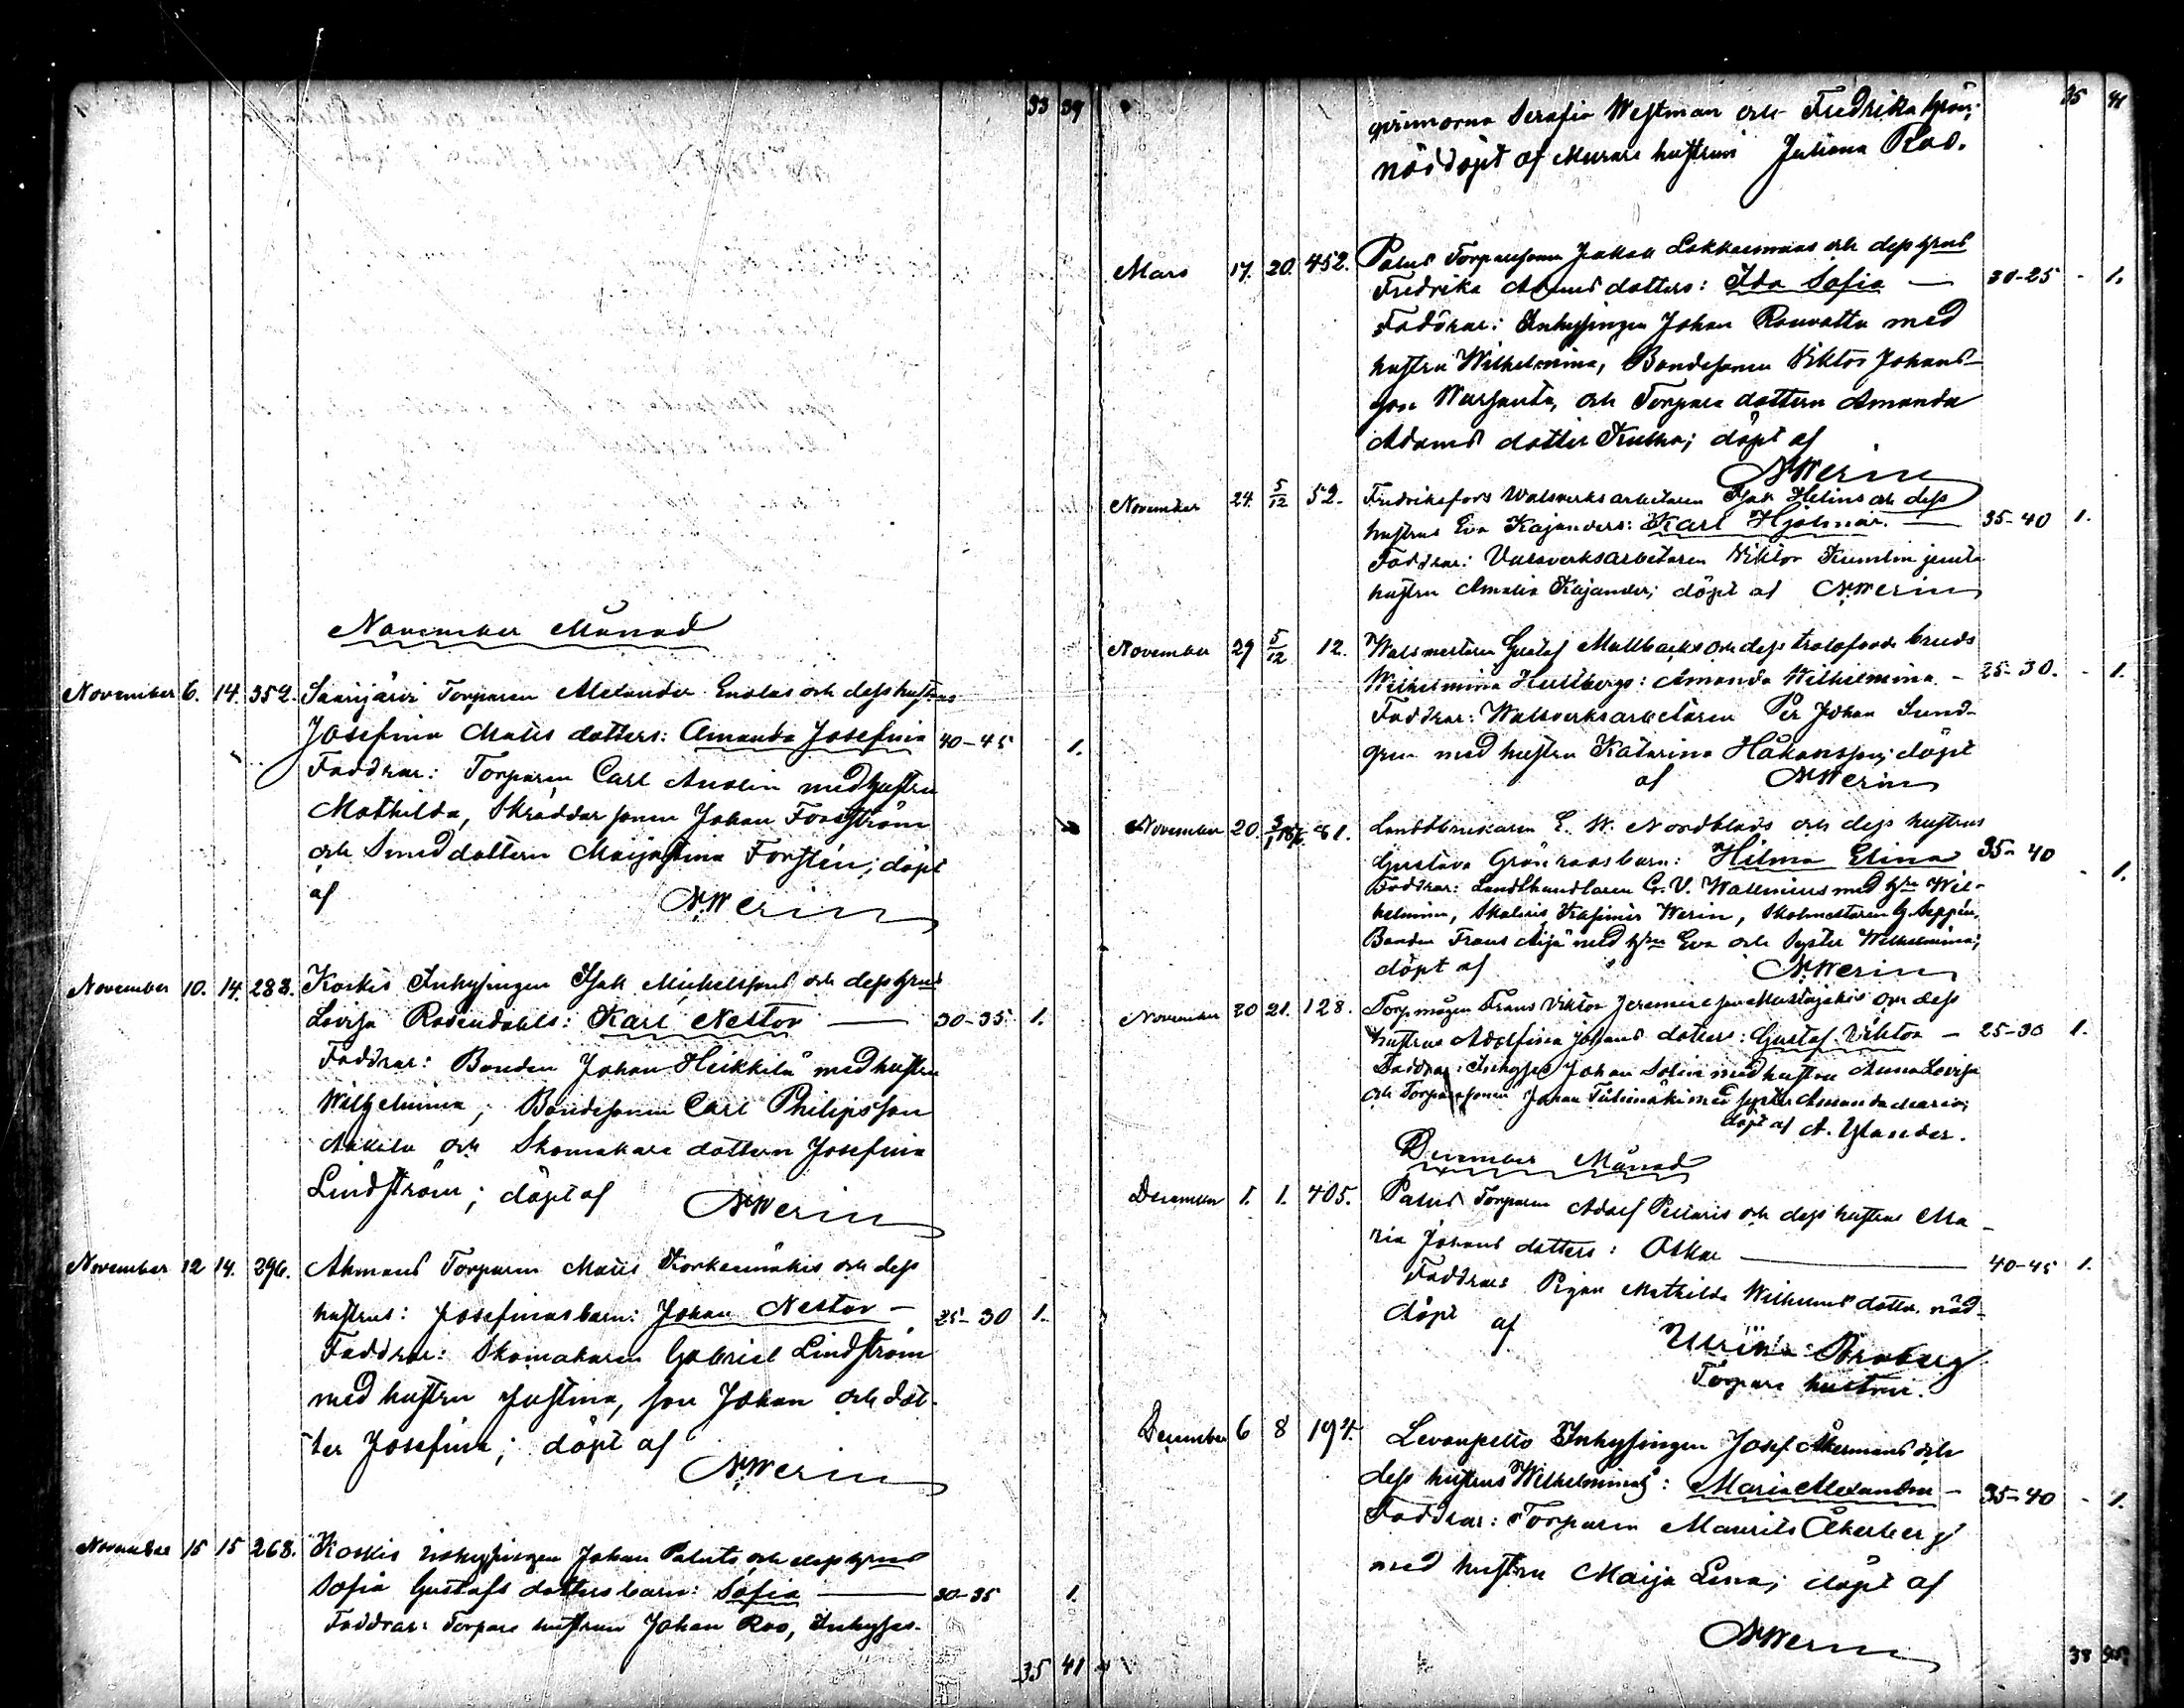 33 39
November Månad
November 6. 14. 352. Saarijärvi Torparen Alexander Enolas och dess hustrus
Josefina Matts dotters: Amanda Josefina 40-45 1.
Faddrar: Torparen Carl Anolin med hustru
Mathilda, Skräddar sonen Johan Forsström
och Smed dottern Maijastina Forstén; döpt
af NWerin
November 10. 14. 288. Koskis Inhysingen Isak Michelssons och dess hrus
Lovisa Rosendahls: Karl Nestor 30-35. 1.
Faddrar: Bonden Johan Heikkilä med hustru
Wilhelmina, Bondesonen Carl Philipsson
och Skomakare dottern Josefina
Lindström; döpt af NWerin
November 12 14. 296. Ahmaus Torparen Matts Korkeamäkis och dess
hustrus: Josefinas barn: Johan Nestor - 25-30 1.
Faddrar: Skomakaren Gabriel Lindström
med hustru Justina, son Johan och dot-
ter Josefina; döpt af NWerin
November 15 15 268. Koskis inhysingen Johan och dess hrus
Sofia Gustafs dotters barn: Sofia 30-35 1.
Faddrar: Torpare hustrun Johan Roo, Inhyses-
35 41
35 41
qvinnorna Serafia Westman och Fredrika
nöddöpt af Murare hustrun Juliana Roo.
Mars 17. 20. 452. Palus Torparesonen Jakob och dess hrus
Fredrika Adams dotters: Ida Sofia 30-25 - 1.
Faddrar: Inhysingen Johan Rouvattu med
hustru Wilhelmina, Bondesonen Viktor Johans-
son och Torpare dottern Amanda
Adams dotter döpt af
NWerin
November 24. 5/12 52. Fredriksfors Walsverksarbetaren Isak Helins och dess
hustrus Eva Kajanders: Karl Hjalmar. 35-40 1.
Faddrar: Valsverksarbetaren Viktor Kumlin jemte
hustru Amalia Kajander; döpt af NWerin
November 29 5/12 12. Walsmästaren Gustaf Mallbacks och dess trolofvade bruds
Wilhelmina Hullbergs: Amanda Wilhelmina - 25-30. - 1.
Faddrar: Walsverksarbetaren Per Johan Sund-
gren med hustru Katarina Håkansson; döpt
af NWerin
November 20. 81. Landtbrukaren E. W. Nordblads och dess hustrus
Gustava Grönroos barn: Hilma Elina 35-40 - 1.
Faddrar: Landthandlaren G. V. Wallenius med hru Wil-
helmina, Skolaris Kasimir Werin, Skolmästaren G. Seppén,
Bonden Frans Äijä med hru Eva och Syster Wilhelmina;
döpt af NWerin
November 20 21. 128. Torpmågen Frans Viktor Jeremiesson och dess
hustrus Adolfina Johans dotters: Gustaf Viktor - 25-30 1.
Faddrar: Inhyses Johan Solin med hustru Anna Lovisa
och Torparesonen Johan med syster Amanda Maria;
döpt af A. Ylander.
December Månad
December 1. 1. 405. Palus Torparen Adolf och dess hustrus Ma-
ria Johans dotters: Oskar 40-45 1.
Faddrar: Pigan Mathilda Wilhelms dotter, nöd-
döpt af Ulrika
Torpare hustru.
December 6 8 194. Levanpelto Inhysingen Josef Åkermans och
dess hustrus Wilhelminas: Maria Alexandra - 35-40 - 1.
Faddrar: Torparen Maurits Åkerberg
med hustru Maija Lena; döpt af
NWerin
38